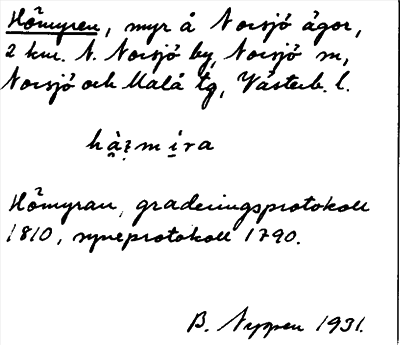 Hömyren, myr å Norsjö ägor,
2 km. N. Norsjö by, Norsjö sn,
Norsjö och Malå tg, Västerb. l.
Hömyran, graderingsprotokoll
1810, syneprotokoll 1790.
B. Nyman 1931.